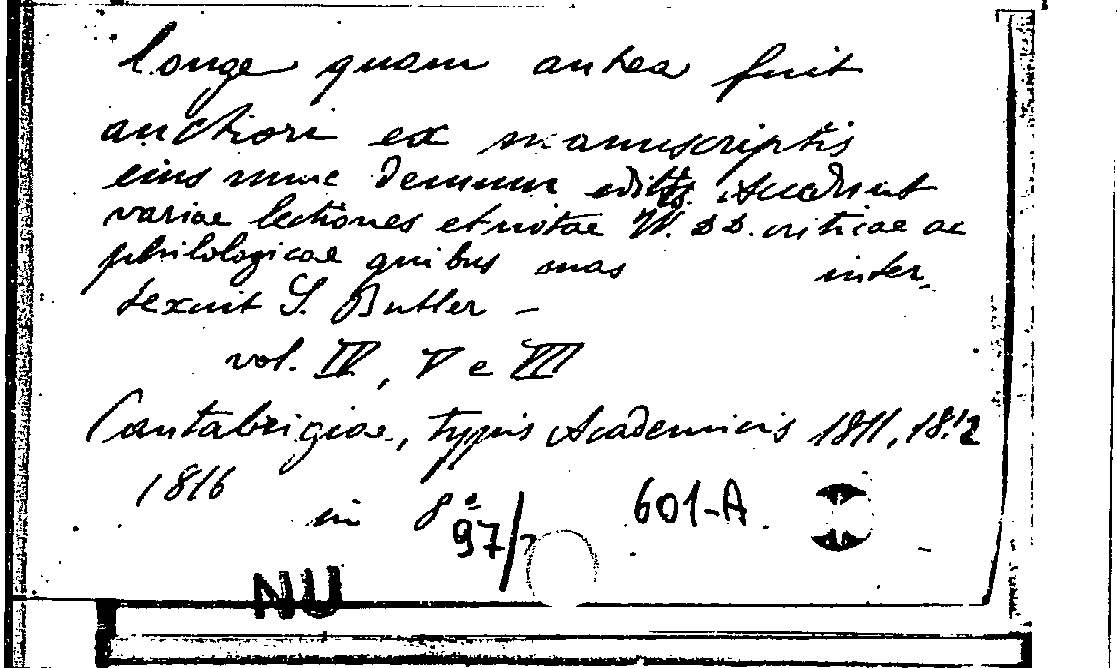 longe quam antea fuit
auctiori ex manuscriptis
eius nunc demum editis. Accedunt
variae lectiones et notae VV. DD. criticae ac
philologicae quibus suas inter
texuit S. Butler -
vol. IV, V e VIII
Cantabrigiae, typis Academicis 1811, 1812
1816
in 8º
97/
601-A
NU